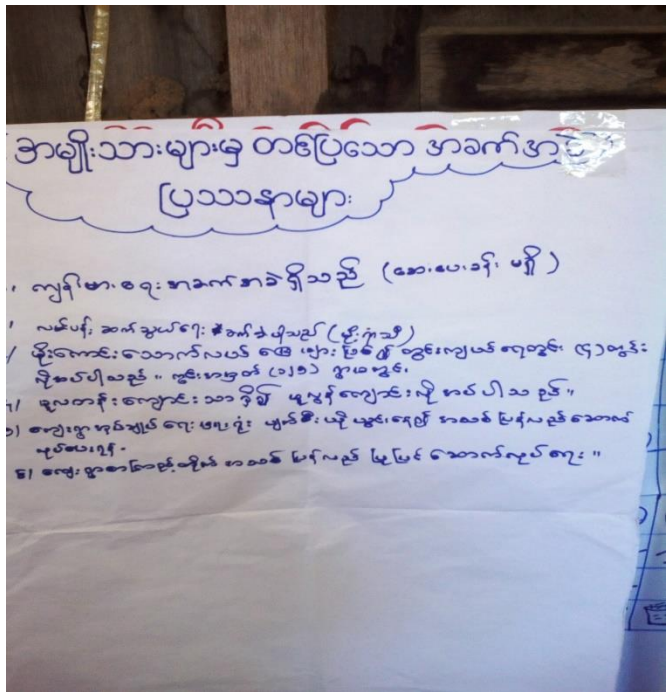 အမျိုးသားများမှ တင်ပြသော အခက်အခဲ
ပြဿနာများ
၁၊ ကျန်းမာရေး အခက်အခဲရှိသည် (ဆေးပေးခန်း မရှိ)
လမ်းပန်း ဆက်သွယ်ရေး ခက်ခဲပါသည် (မိုးရာသီ)
မိုးကောင်းသောက်လယ် မြေများ ဖြစ်၍ တွင်းကျယ် ရေတွင်း (၄) တွင်း
လိုအပ်ပါသည်။ ကွင်းအမှတ် (၁၂၅၁) ရွာမတွင်း
မူလတန်းကျောင်းသာ ရှိ၍ မူလွန်ကျောင်း လိုအပ်ပါသည်။
ကျေးရွာအုပ်ချုပ်ရေးမှူးရုံး ပျက်စီး ယိုယွင်းနေ၍ အသစ် ပြန်လည်ဆောက်
လုပ်ပေးရန်။
၆၊ ကျေးရွာစာကြည့်တိုက် အသစ် ပြန်လည် ပြုပြင် ဆောက်လုပ်ရေး။